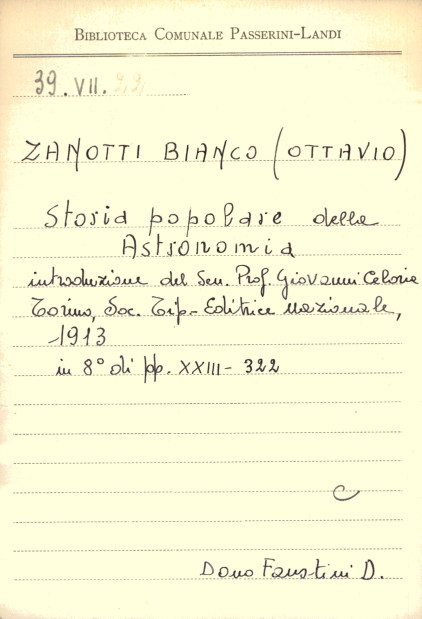 BIBLIOTECA COMUNALE PASSERINI-LANDI
39. VII. 22
ZANOTTI BIANCO (OTTAVIO)
Storia popolare della
Astronomia
introduzione del Sen. Prof. Giovanni Celoria
Torino, Soc. Tip-Editrice Nazionale,
1913
in 8° di pp. XXIII-322
C
Dono Faustini D.